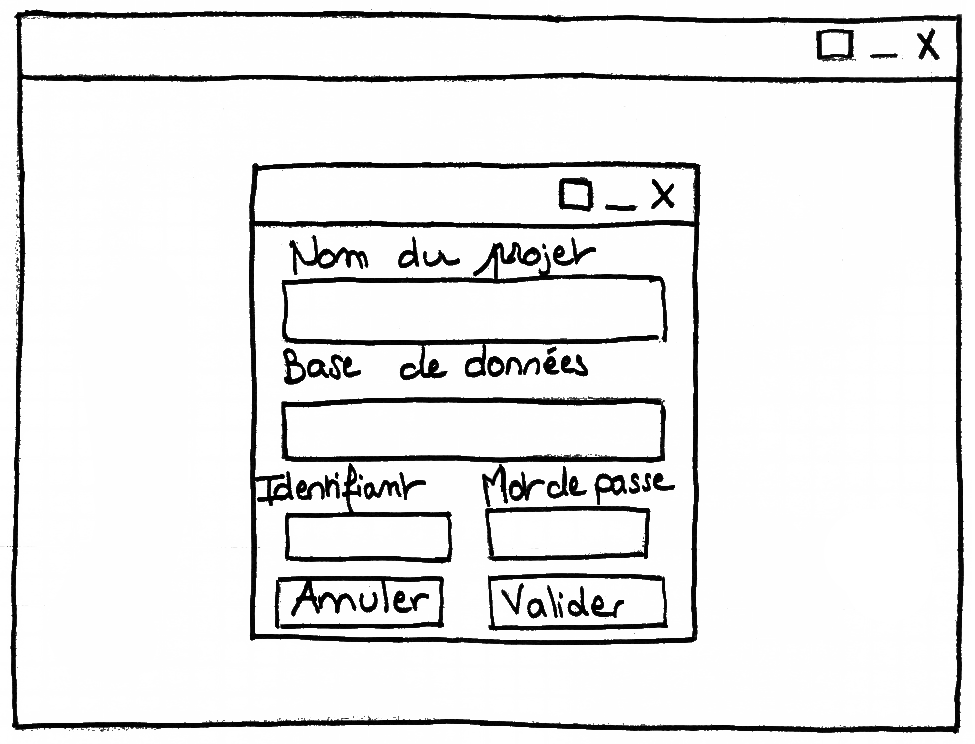 Nom du projet
Base de données
Identifiant Mot de passe
Annuler Valider